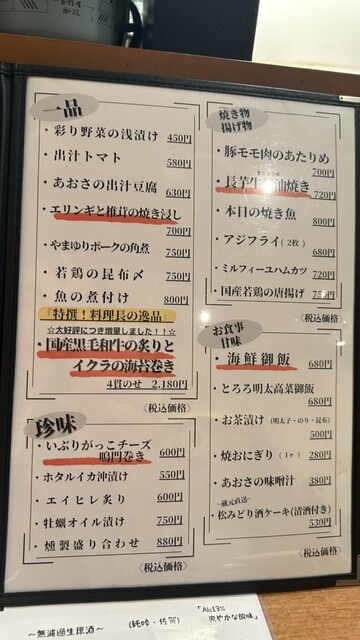 一品
・彩り野菜の浅漬け 450円
・出汁トマト 580円
・あおさの出汁豆腐 630円
・エリンギと椎茸の焼き浸し
700円
・やまゆりポークの角煮 750円
・若鶏の昆布〆 750円
・魚の煮付け 800円
『特撰！料理長の逸品』
☆大好評につき増量しました！！！☆
・国産黒毛和牛の炙りと
イクラの海苔巻き
4貫のせ 2,180円
〈税込価格〉
珍味
・いぶりがっこチーズ
鳴門巻き 600円
・ホタルイカ沖漬け 550円
・エイヒレ炙り 600円
・牡蠣オイル漬け 750円
・燻製盛り合わせ 880円
〈税込価格〉
焼き物
揚げ物
・豚モモ肉のあたりめ
700円
・長芋生 焼き 720円
・本日の焼き魚
800円
・アジフライ(2枚) 680円
・ミルフィーユハムカツ 720円
・国産若鶏の唐揚げ 750円
〈税込価格〉
お食事
甘味
・海鮮御飯 680円
・とろろ明太高菜御飯
680円
・お茶漬け (明太子・のり・昆布)
500円
・焼おにぎり (1ヶ) 280円
・あおさの味噌汁 380円
－蔵元直送－
・松みどり酒ケーキ(清酒付き)
530円
〈税込価格〉
～無濾過生原酒～
「Alc13%
爽やかな酸味」